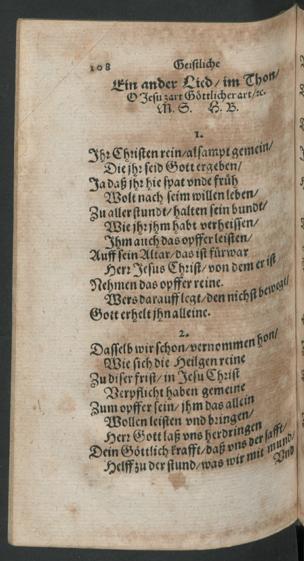 108 Geistliche
Ein ander Lied/ im Thon/
O Jesu zart Göttlicher art/ ꝛc.
M. S. H. B.
1.
Ihr Christen rein/ alsampt gemein/
Die jhr seid Gott ergeben/
Ja daß jhr hie spat vnde früh
Wolt nach seim willen leben/
Zu aller stundt/ halten sein bundt/
Wie jhr jhm habt verheissen/
Ihm auch das opffer leisten/
Auff sein Altar/ das ist fürwar
Herr Jesus Christ/ von dem er ist
Nehmen das opffer reine.
Wers darauff legt/ den nichst bewegt/
Gott erhelt jhn alleine.
2.
Dasselb wir schon/ vernommen hon/
Wie sich die Heilgen reine
Zu diser frist/ in Jesu Christ
Verpflicht haben gemeine
Zum opffer sein/ jhm das allein
Wollen leisten vnd bringen/
Herr Gott laß vns herdringen
Dein Göttlich krafft/ daß vns der safft/
Helff zu der stund/ was wir mit mund/
Vnd